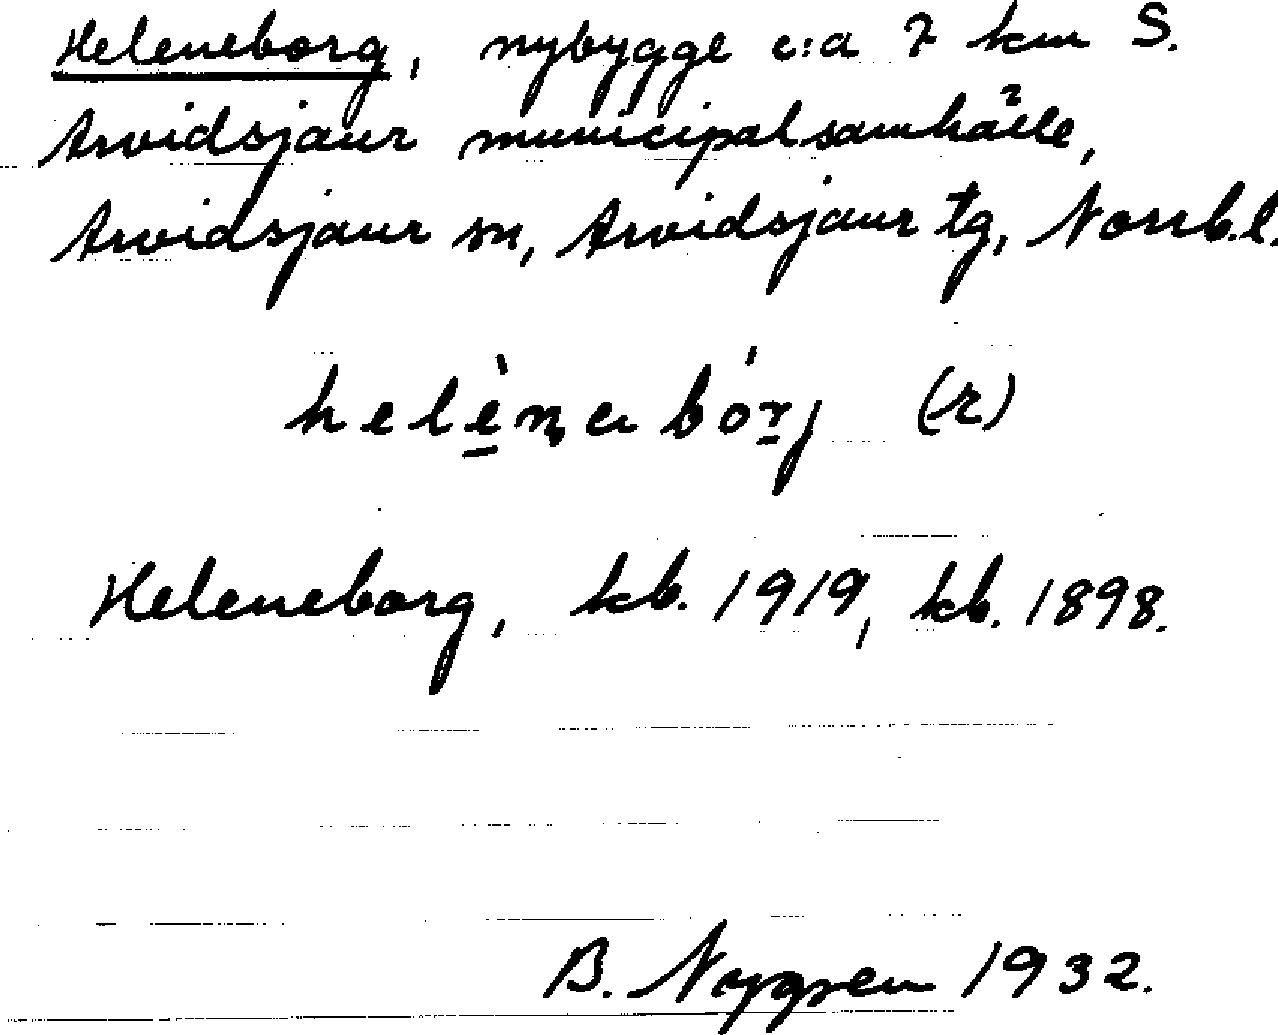 Heleneborg, nybygge c:a 7 km S.
Arvidsjaur municipalsamhälle,
Arvidsjaur sn, Arvidsjaur tg, Norrb.l.
helènabórj (r)
Heleneborg, kb. 1919, kb. 1898.
B. Nygren 1932.